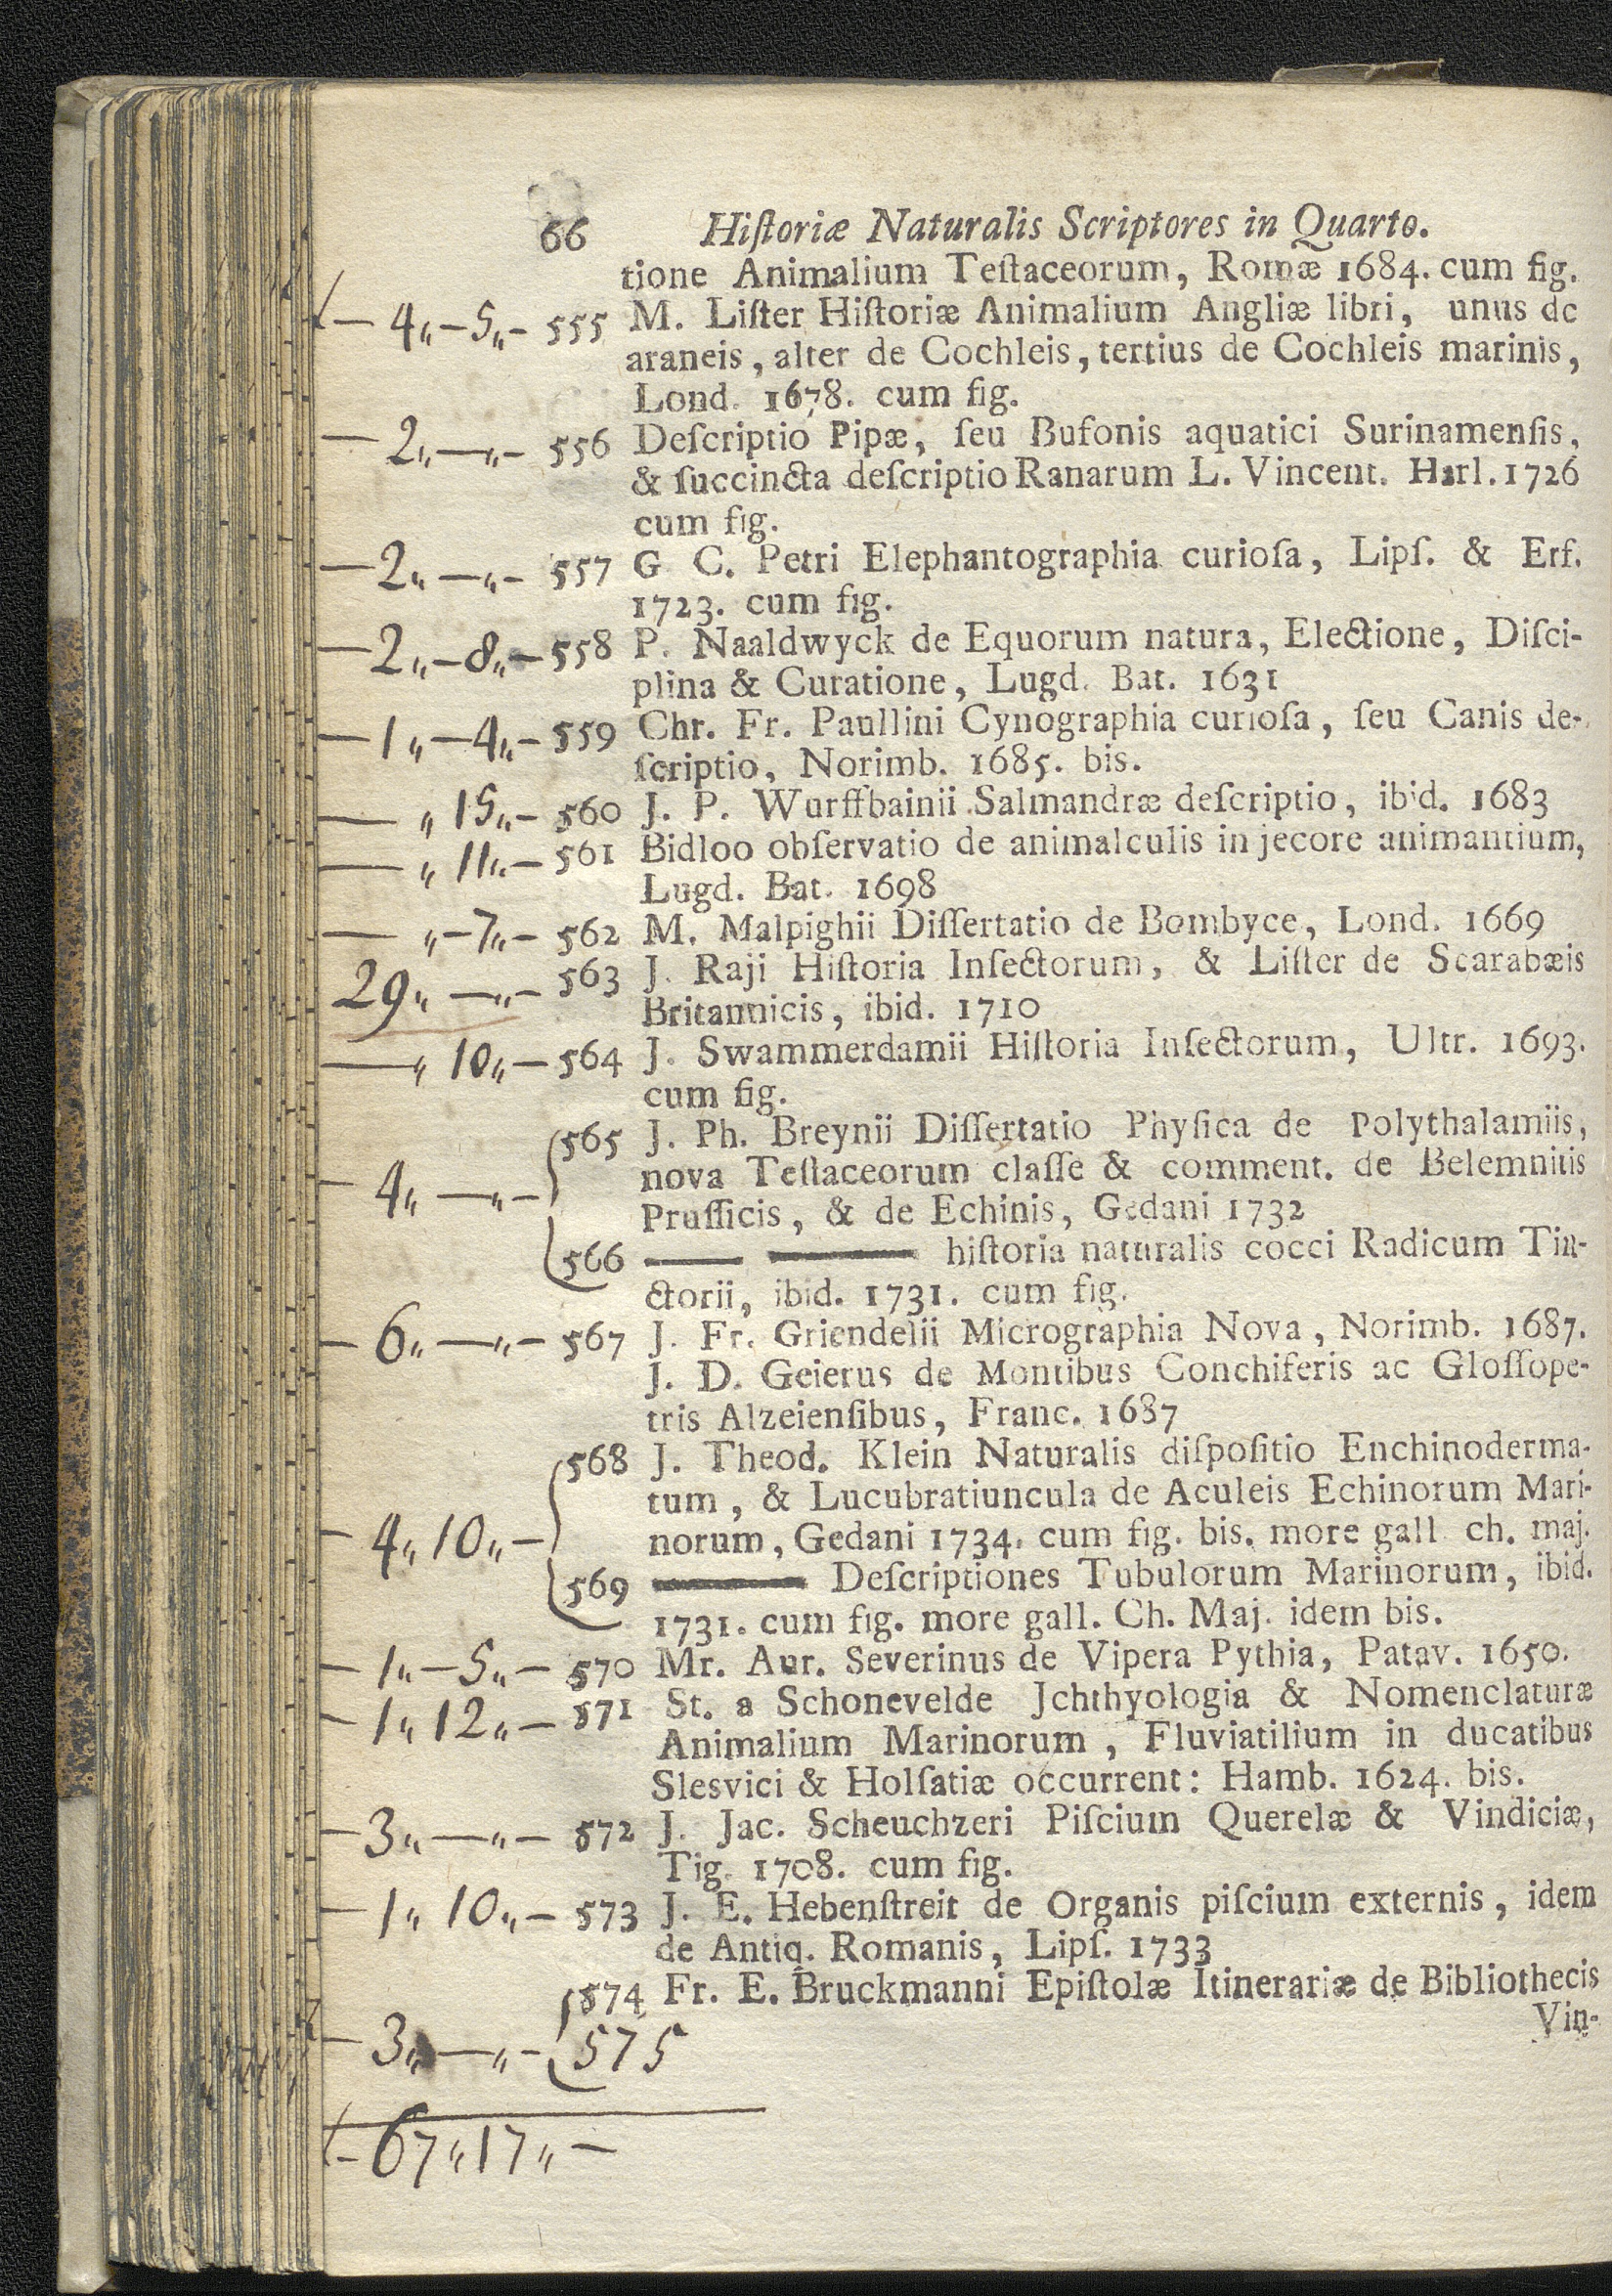 66 Hiſtoriæ Naturalis Scriptores in Quarto.
tione Animalium Teſtaceorum, Romæ 1684. cum fig.
— 4„—5„— 555 M. Liſter Hiſtoriæ Animalium Angliæ libri, unus de
araneis, alter de Cochleis, tertius de Cochleis marinis,
Lond. 1678. cum fig.
— 2„—„— 556 Deſcriptio Pipæ, ſeu Bufonis aquatici Surinamenſis,
& ſuccincta deſcriptio Ranarum L. Vincent. Harl. 1726
cum fig.
— 2„—„— 557 G C. Petri Elephantographia curioſa, Lipſ. & Erf.
1723. cum fig.
— 2„—8„— 558 P. Naaldwyck de Equorum natura, Electione, Diſci-
plina & Curatione, Lugd. Bat. 1631
— 1„—4„— 559 Chr. Fr. Paullini Cynographia curioſa, ſeu Canis de-
ſcriptio, Norimb. 1685. bis.
— „ 15„— 560 J. P. Wurffbainii Salmandræ deſcriptio, ibid. 1683
— „ 11„— 561 Bidloo obſervatio de animalculis in jecore animantium,
Lugd. Bat. 1698
— „—7„— 562 M. Malpighii Diſſertatio de Bombyce, Lond. 1669
29„—„— 563 J. Raji Hiſtoria Inſectorum, & Liſter de Scarabæis
Britannicis, ibid. 1710
— „ 10„— 564 J. Swammerdamii Hiſtoria Inſectorum, Ultr. 1693.
cum fig.
565 J. Ph. Breynii Diſſertatio Phyſica de Polythalamiis,
— 4„—„— nova Teſtaceorum claſſe & comment. de Belemnitis
Pruſſicis, & de Echinis, Gedani 1732
566 —— —— hiſtoria naturalis cocci Radicum Tin-
ctorii, ibid. 1731. cum fig.
— 6„—„— 567 J. Fr. Griendelii Micrographia Nova, Norimb. 1687.
J. D. Geierus de Montibus Conchiferis ac Gloſſope-
tris Alzeienſibus, Franc. 1687
568 J. Theod. Klein Naturalis diſpoſitio Enchinoderma-
tum, & Lucubratiuncula de Aculeis Echinorum Mari-
— 4„ 10„— norum, Gedani 1734. cum fig. bis. more gall. ch. maj.
569 —— Deſcriptiones Tubulorum Marinorum, ibid.
1731. cum fig. more gall. Ch. Maj. idem bis.
— 1„—5„— 570 Mr. Aur. Severinus de Vipera Pythia, Patav. 1650.
— 1„ 12„— 571 St. a Schonevelde Jchthyologia & Nomenclaturæ
Animalium Marinorum, Fluviatilium in ducatibus
Slesvici & Holſatiæ occurrent: Hamb. 1624. bis.
— 3„—„— 572 J. Jac. Scheuchzeri Piſcium Querelæ & Vindiciæ,
Tig. 1708. cum fig.
— 1„ 10„— 573 J. E. Hebenſtreit de Organis piſcium externis, idem
de Antiq. Romanis, Lipſ. 1733
574 Fr. E. Bruckmanni Epiſtolæ Itinerariæ de Bibliothecis
Vin-
— 3„—„— 575
— 67„17„—